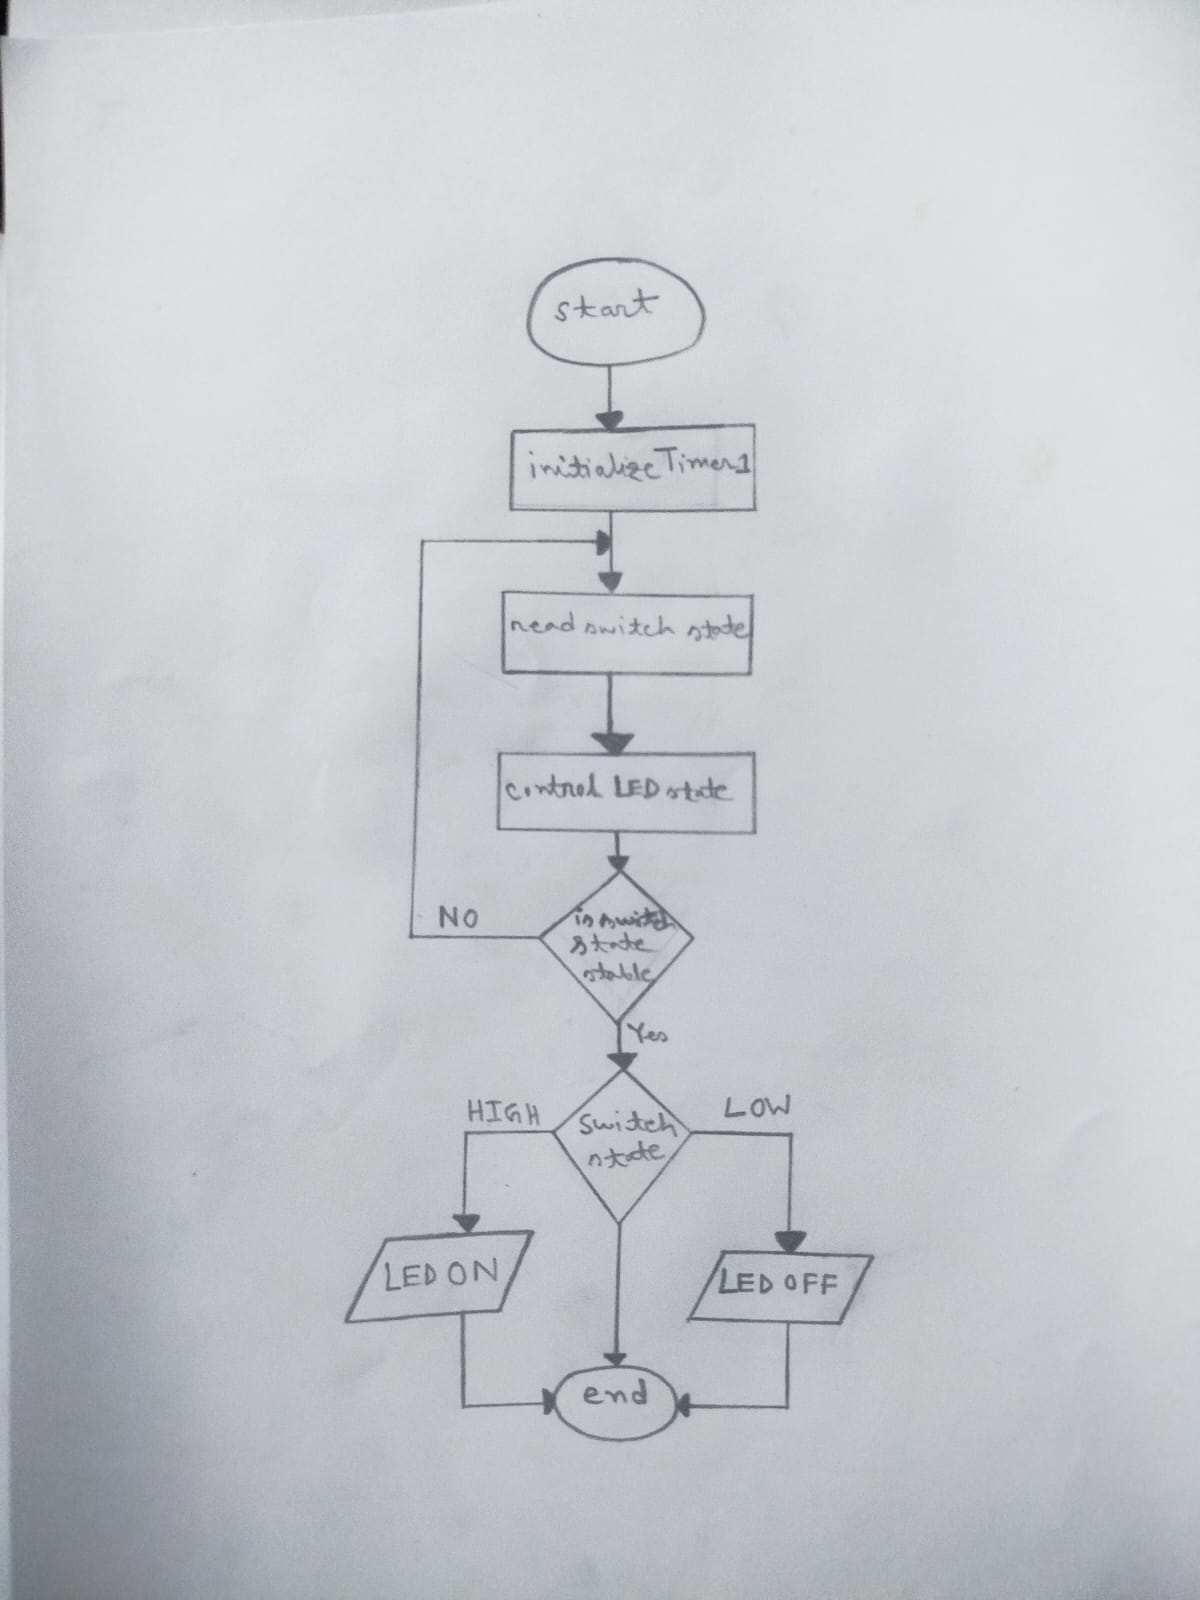 start
initialize Timer1
read switch state
control LED state
NO
is switch
state
stable
Yes
HIGH
LOW
switch
state
LED ON
LED OFF
end